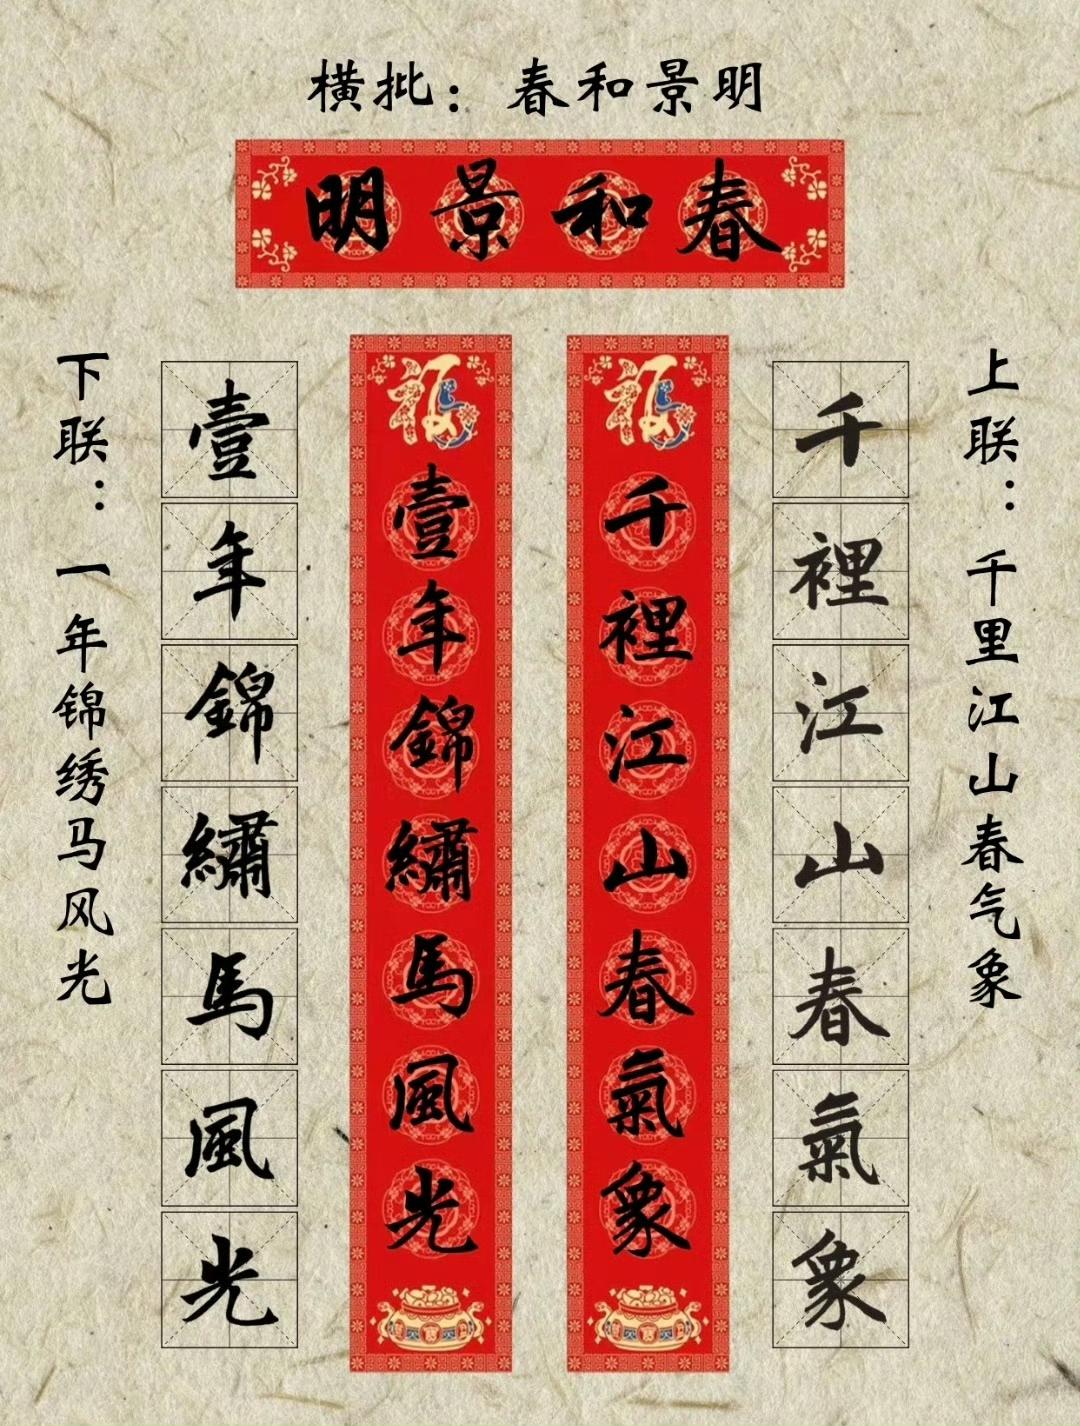 横批：春和景明
明景和春
上联：千里江山春气象
千裡江山春氣象
福
千裡江山春氣象
福
壹年錦繡馬風光
壹年錦繡馬風光
下联：一年锦绣马风光